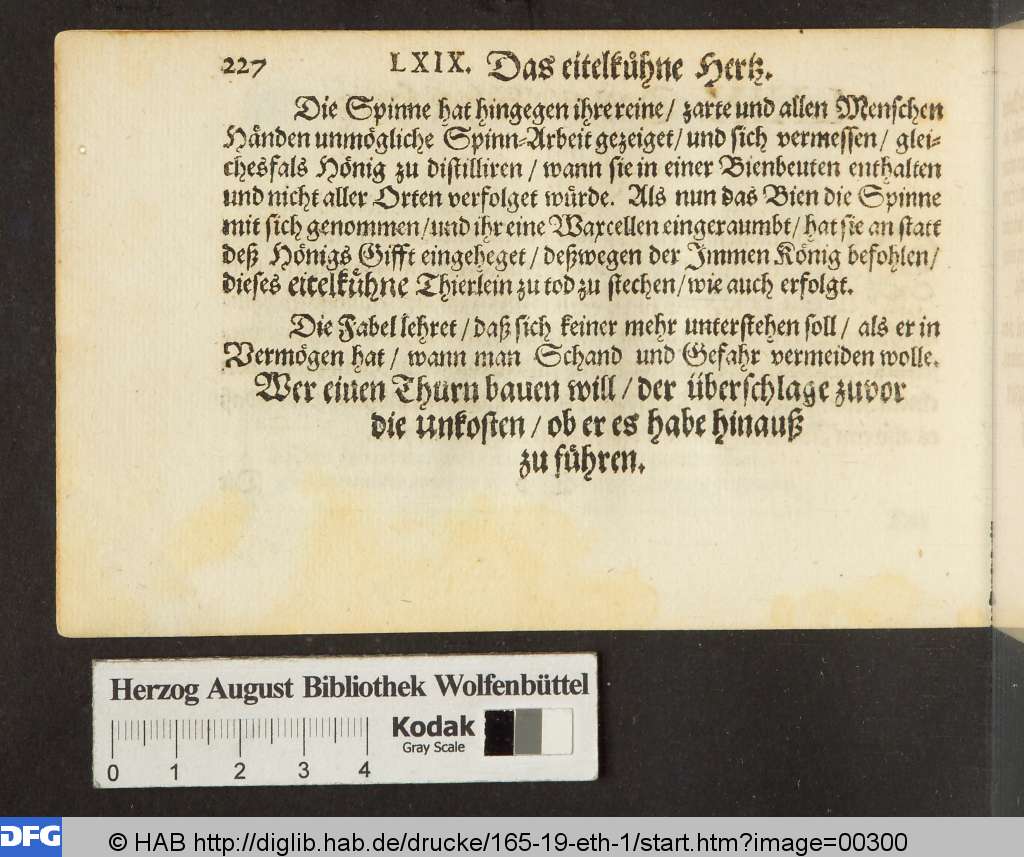 227 LXIX. Das eitelkühne Hertz.
Die Spinne hat hingegen ihre reine / zarte und allen Menschen
Händen unmögliche Spinn-Arbeit gezeiget / und sich vermessen / glei-
chesfals Hönig zu distilliren / wann sie in einer Bienbeuten enthalten
und nicht aller Orten verfolget würde. Als nun das Bien die Spinne
mit sich genommen / und ihr eine Waxcellen eingeraumbt / hat sie an statt
deß Hönigs Gifft eingeheget / deßwegen der Immen König befohlen /
dieses eitelkühne Thierlein zu tod zu stechen / wie auch erfolgt.
Die Fabel lehret / daß sich keiner mehr unterstehen soll / als er in
Vermögen hat / wann man Schand und Gefahr vermeiden wolle.
Wer einen Thurn bauen will / der überschlage zuvor
die Unkosten / ob er es habe hinauß
zu führen.
Herzog August Bibliothek Wolfenbüttel
Kodak
Gray Scale
0 1 2 3 4
DFG © HAB http://diglib.hab.de/drucke/165-19-eth-1/start.htm?image=00300